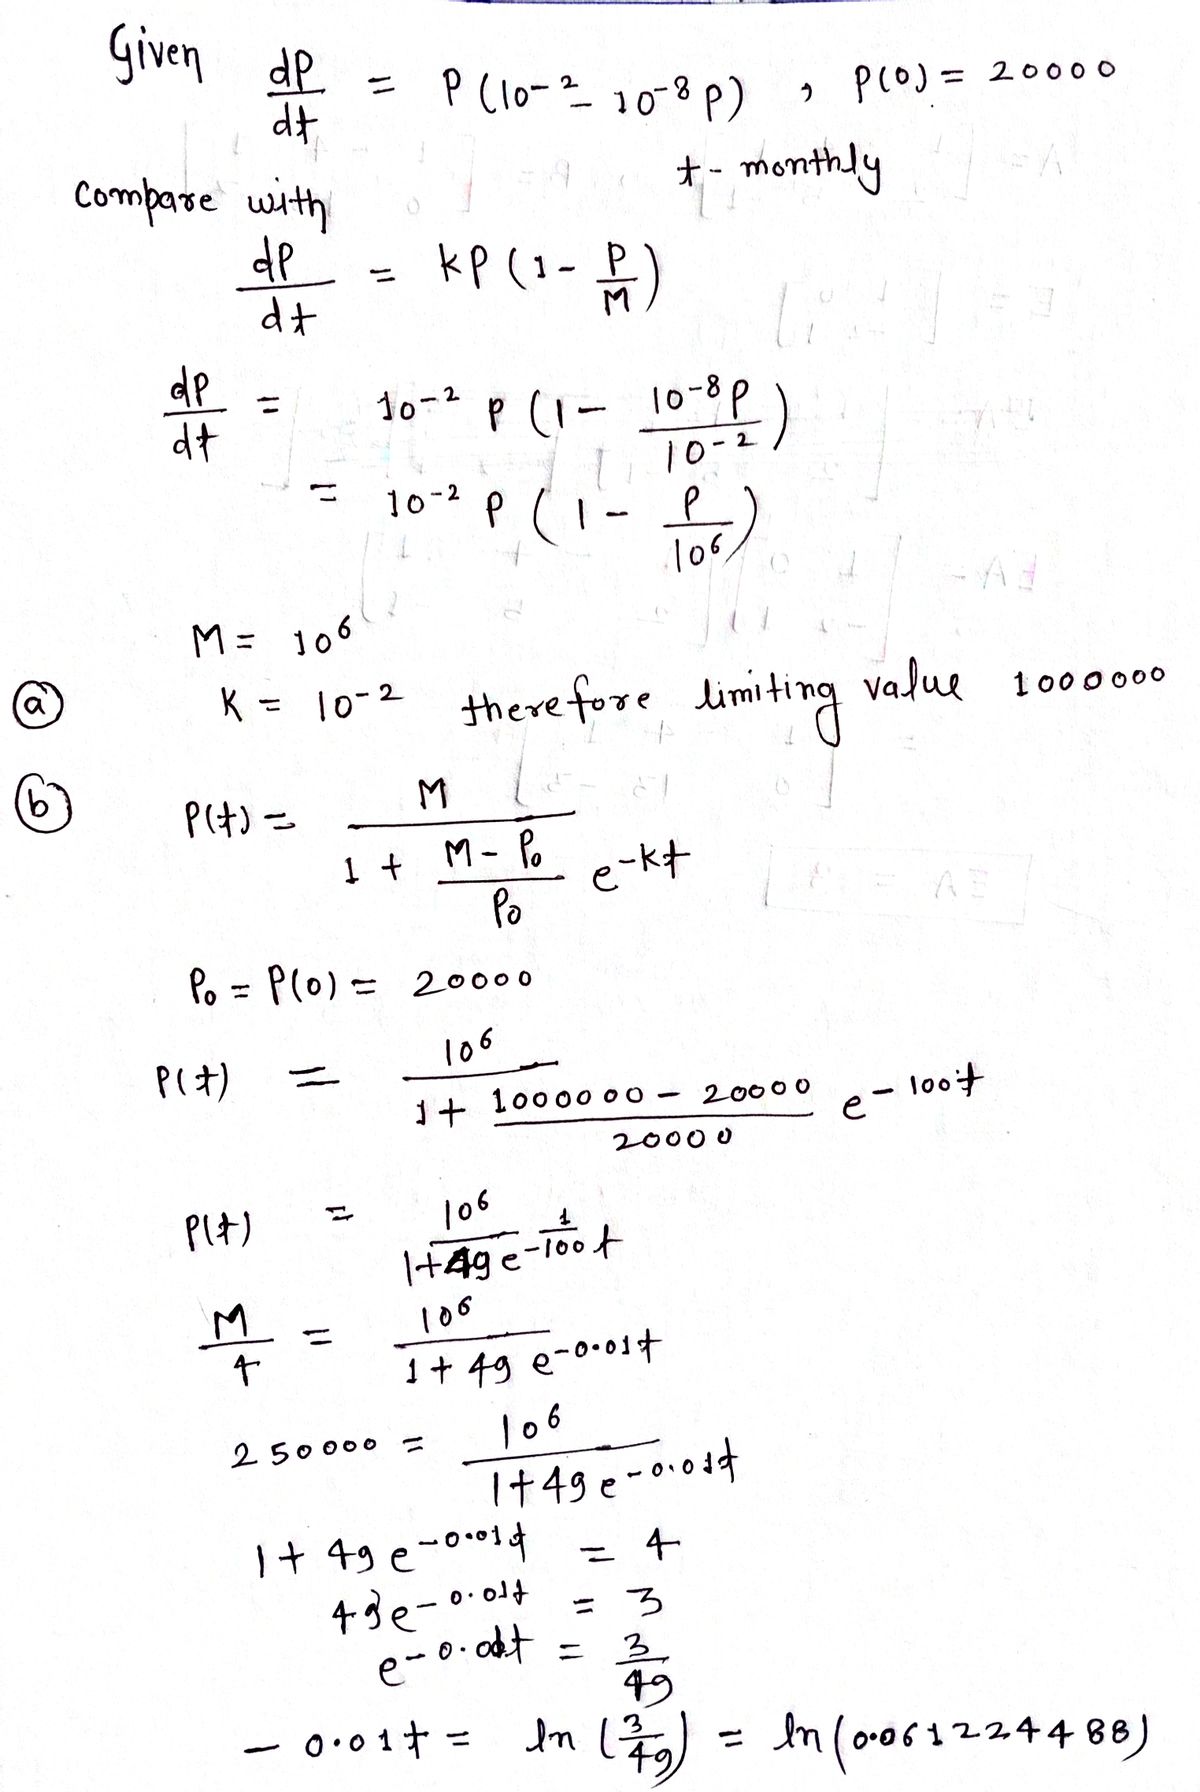 Given dP/dt = P(10^-2 - 10^-8 P) , P(0) = 20000
t - monthly
compare with
dP/dt = kP(1 - P/M)
dP/dt = 10^-2 P(1 - 10^-8P/10^-2)
= 10^-2 P(1 - P/10^6)
M = 10^6
(a) K = 10^-2 therefore limiting value 1000000
(b) P(t) = M/(1 + (M - P0)/P0 e^-kt)
P0 = P(0) = 20000
P(t) = 10^6/(1 + (1000000 - 20000)/20000 e^-100t)
P(t) = 10^6/(1+49 e^-1/100 t)
M/4 = 10^6/(1 + 49 e^-0.01t)
250000 = 10^6/(1+49 e^-0.01t)
1+ 49 e^-0.01t = 4
49e^-0.01t = 3
e^-0.01t = 3/49
-0.01t = ln(3/49) = ln(0.0612244 88)